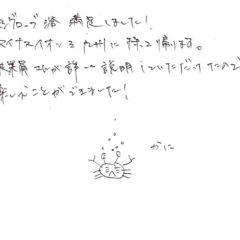 グローブ浴 満足しました!
マイナスイオンを九州に持って帰ります。
業員さんが詳しく説明していただけたので
楽しむことができました!
かに